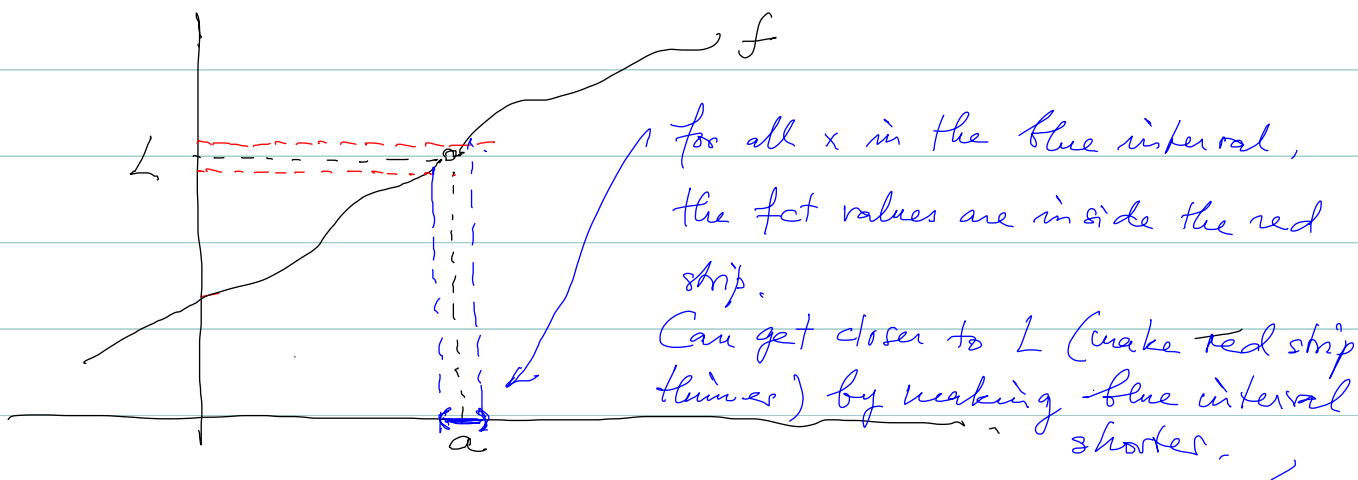 f
L
for all x in the blue interval,
the fct values are inside the red
strip.
Can get closer to L (make red strip
thinner) by making blue interval
shorter.
a